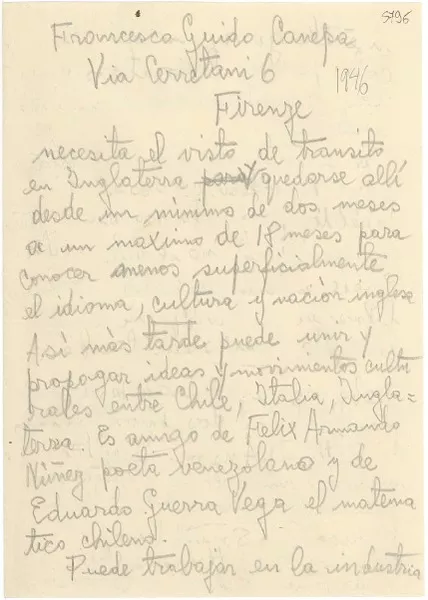 5796
Francesca Guido Canepa
Via Cerretani 6
1946
Firenze
necesita el visto de transito
en Inglaterra para y quedarse allí
desde un minimo de dos meses
a un maximo de 18 meses para
conocer menos superficialmente
el idioma, cultura y nación inglesa
Así más tarde puede unir y
propagar ideas y movimientos cultu
rales entre Chile, Italia, Ingla=
terra. Es amigo de Felix Armando
Núñez poeta venezolano y de
Eduardo Guerra Vega el matema
tico chileno.
Puede trabajar en la industria